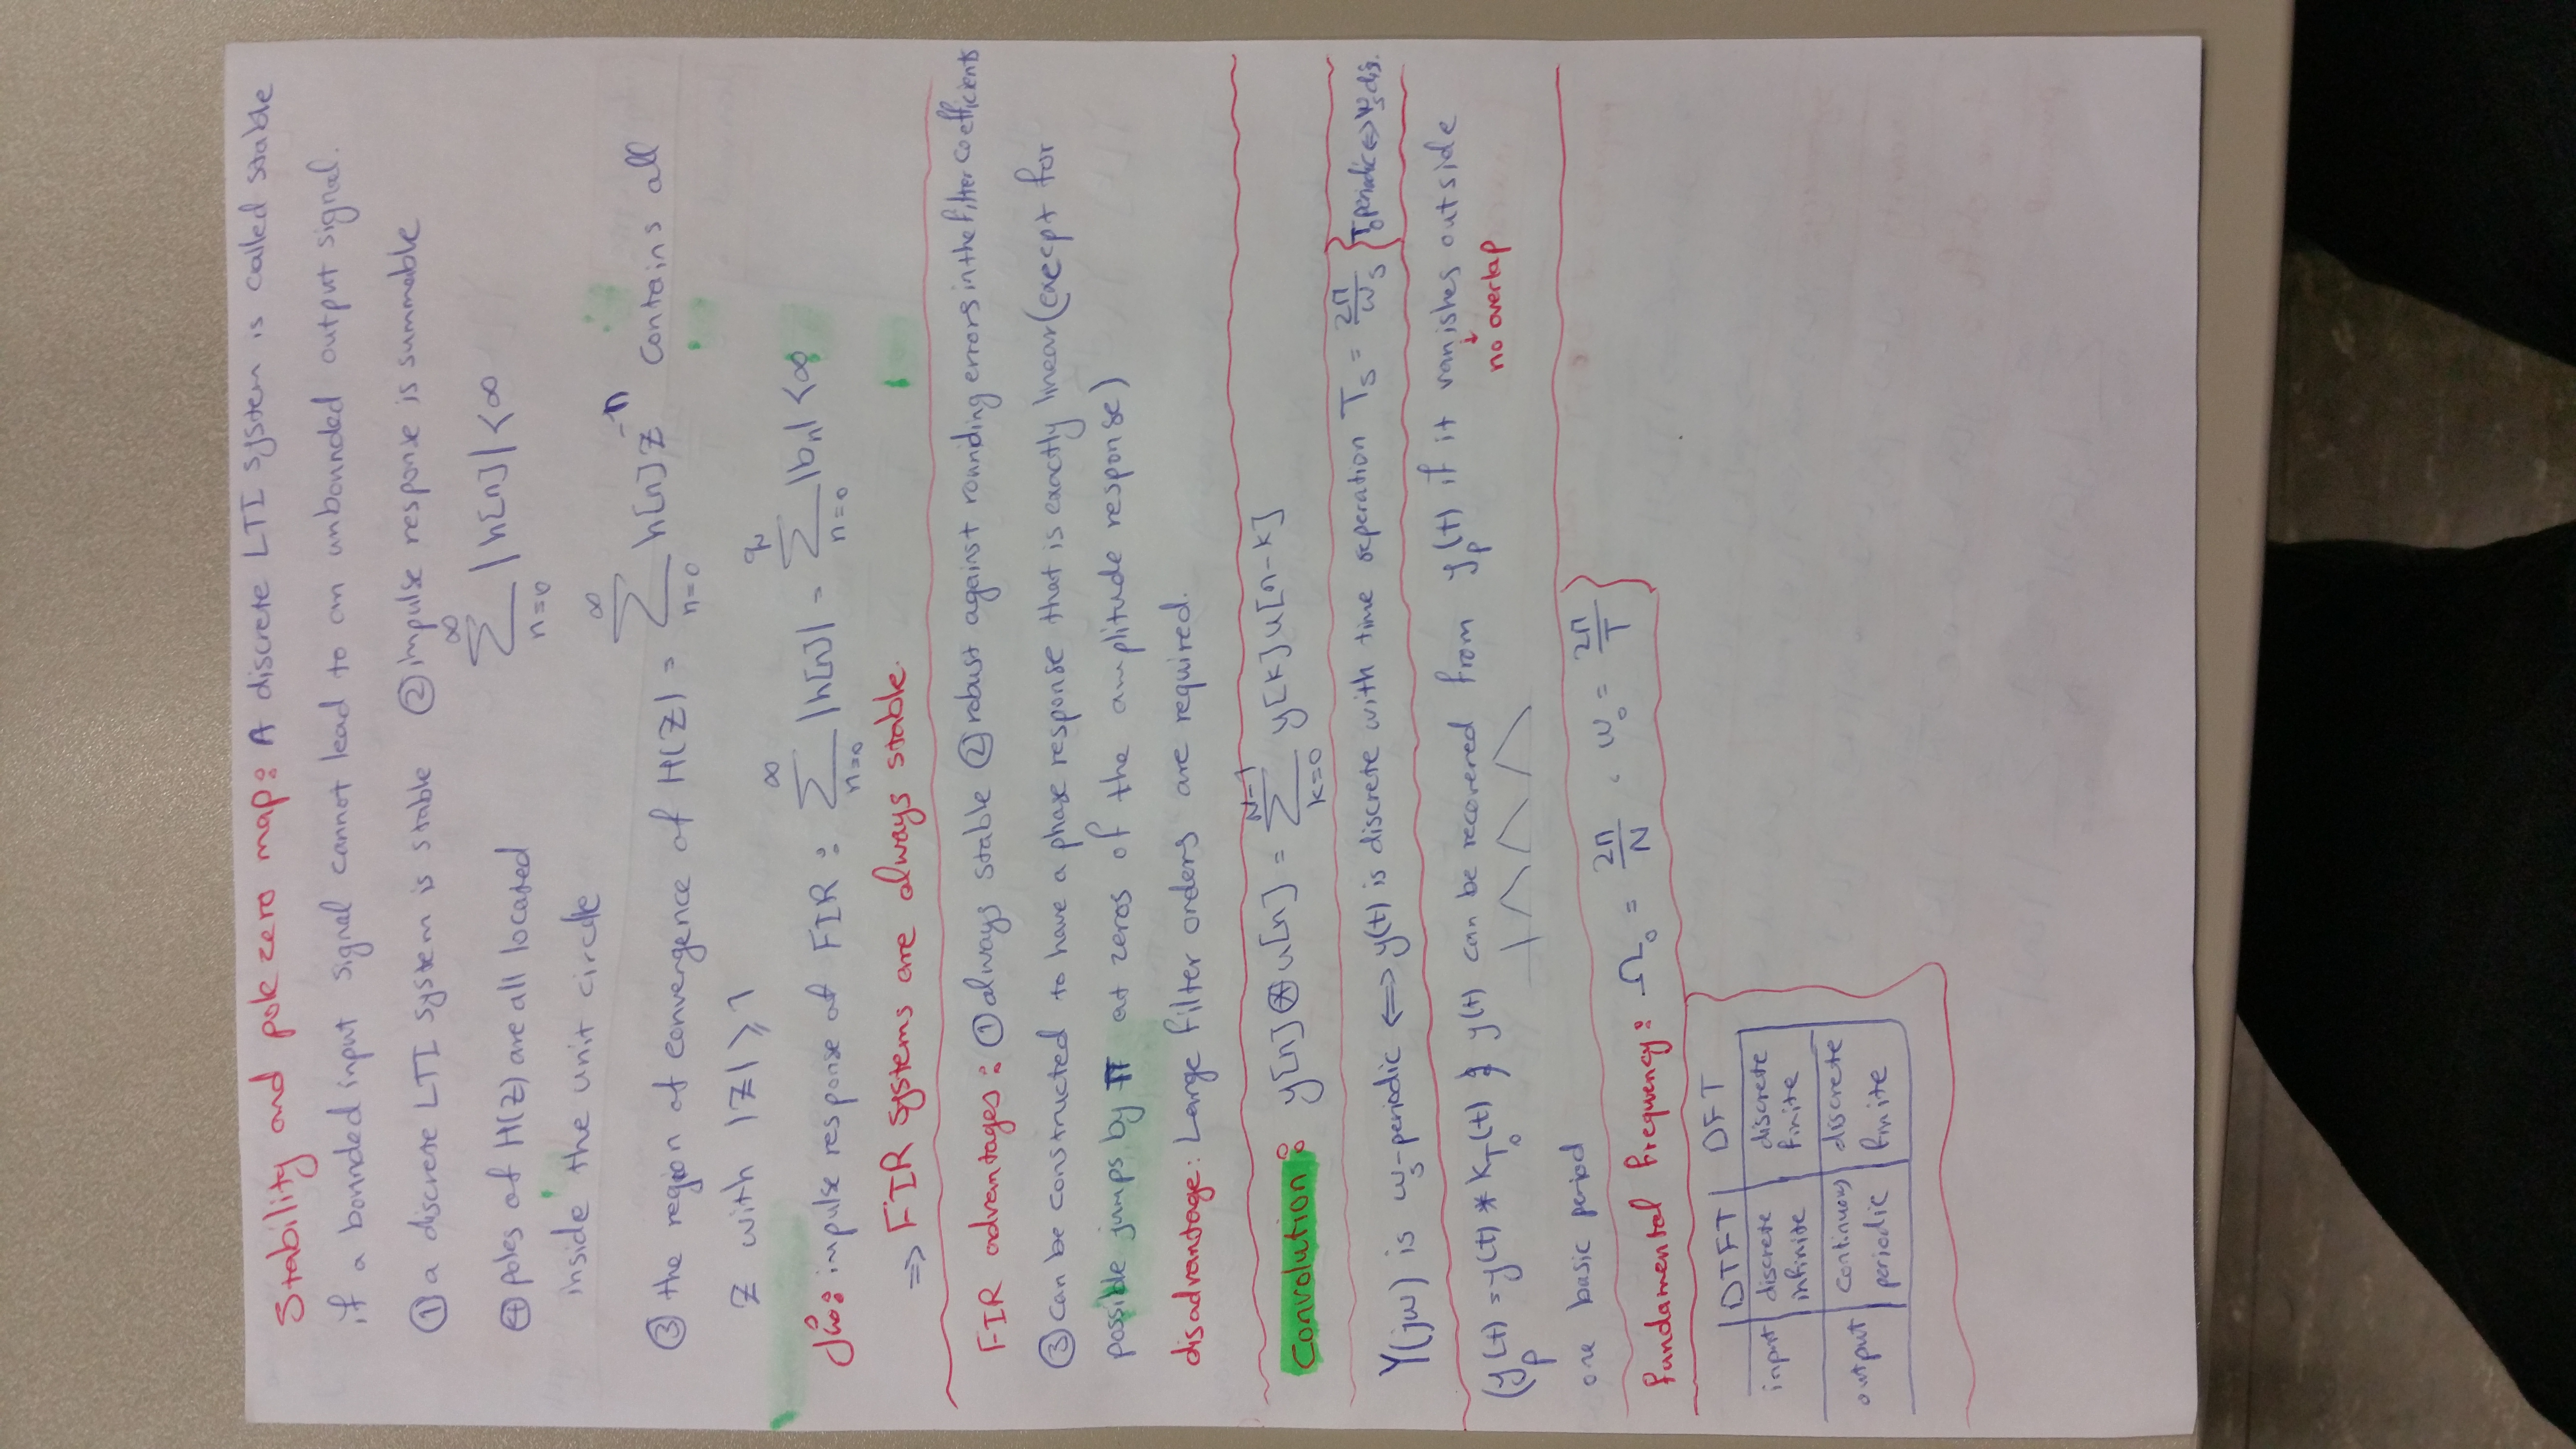 Stability and pole zero map: A discrete LTI system is called stable
if a bonded input signal cannot lead to an unbounded output signal.
① a discrete LTI system is stable ② impulse response is summable
∑_{n=0}^{∞} |h[n]| < ∞
④ poles of H(z) are all located
inside the unit circle
③ the region of convergence of H(z) = ∑_{n=0}^{∞} h[n] z^{-n} contains all
z with |z| ≥ 1
مثال: impulse response of FIR: ∑_{n=0}^{∞} |h[n]| = ∑_{n=0}^{q} |b_n| < ∞
=> FIR systems are always stable.
FIR advantages: ① always stable ② robust against rounding errors in the filter coefficients
③ can be constructed to have a phase response that is exactly linear (except for
possible jumps by π at zeros of the amplitude response)
disadvantage: Large filter orders are required.
Convolution: y[n] ⊛ u[n] = ∑_{k=0}^{N-1} y[k] u[n-k]
Y(jω) is ω_s-periodic <=> y(t) is discrete with time seperation T_s = 2π/ω_s } T_0 periodic <=> ω_s dis.
(y_p(t) = y(t) * k_{T_0}(t) } y(t) can be recovered from y_p(t) if it vanishes outside
no overlap
one basic period
fundamental frequency: Ω_0 = 2π/N , ω_0 = 2π/T
DTFT DFT
input discrete infinite discrete finite
output continuous periodic discrete finite